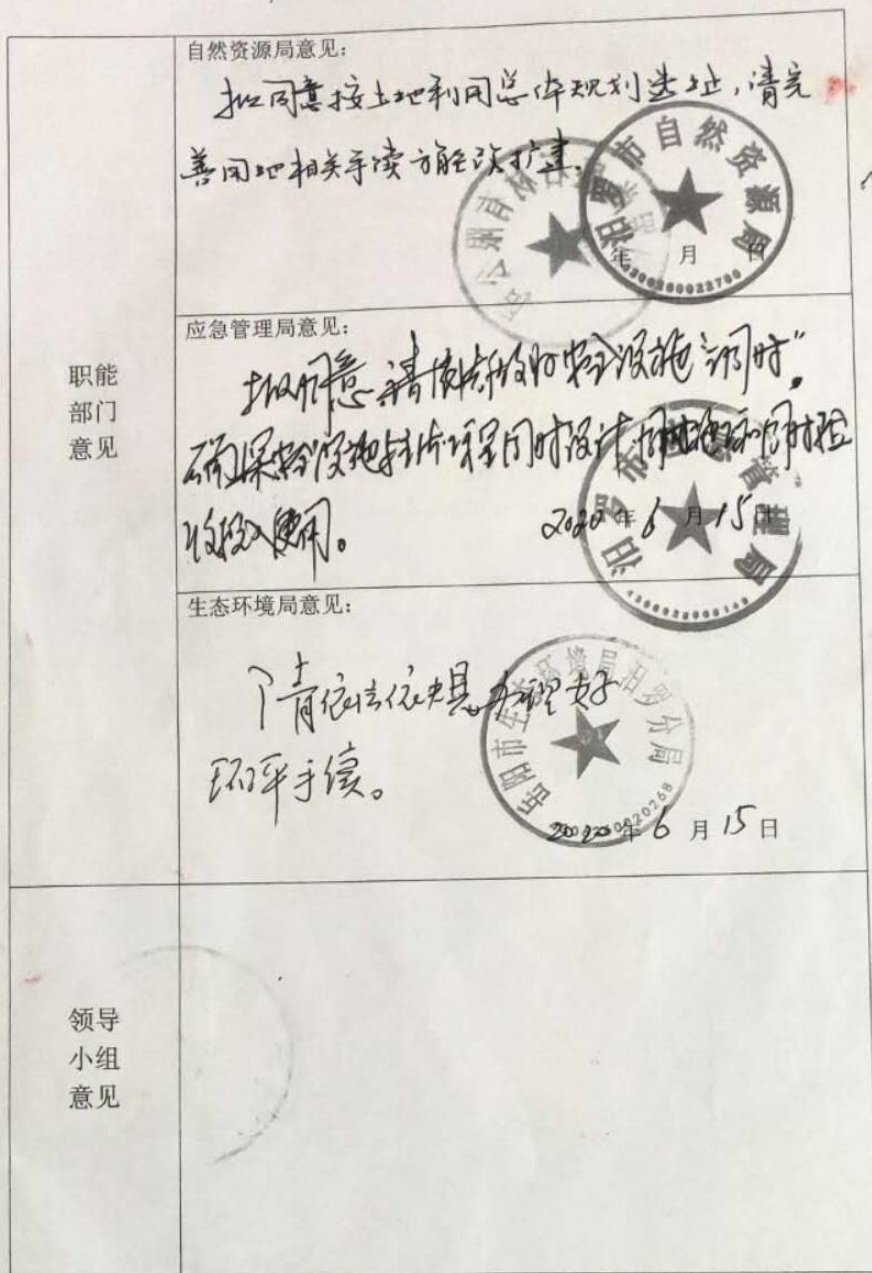 自然资源局意见：
拟同意按土地利用总体规划选址，请完
善用地相关手续方能改扩建。
汨罗市自然资源局
年 月 日
职能
部门
意见
应急管理局意见：
拟同意，请做好安全设施"三同时"。
确保安全设施与主体工程同时设计、同时施工、同时验
收投入使用。
汨罗市应急管理局
2020年6月15日
生态环境局意见：
请依法依规办理好
环评手续。
岳阳市生态环境局汨罗分局
2020年6月15日
领导
小组
意见